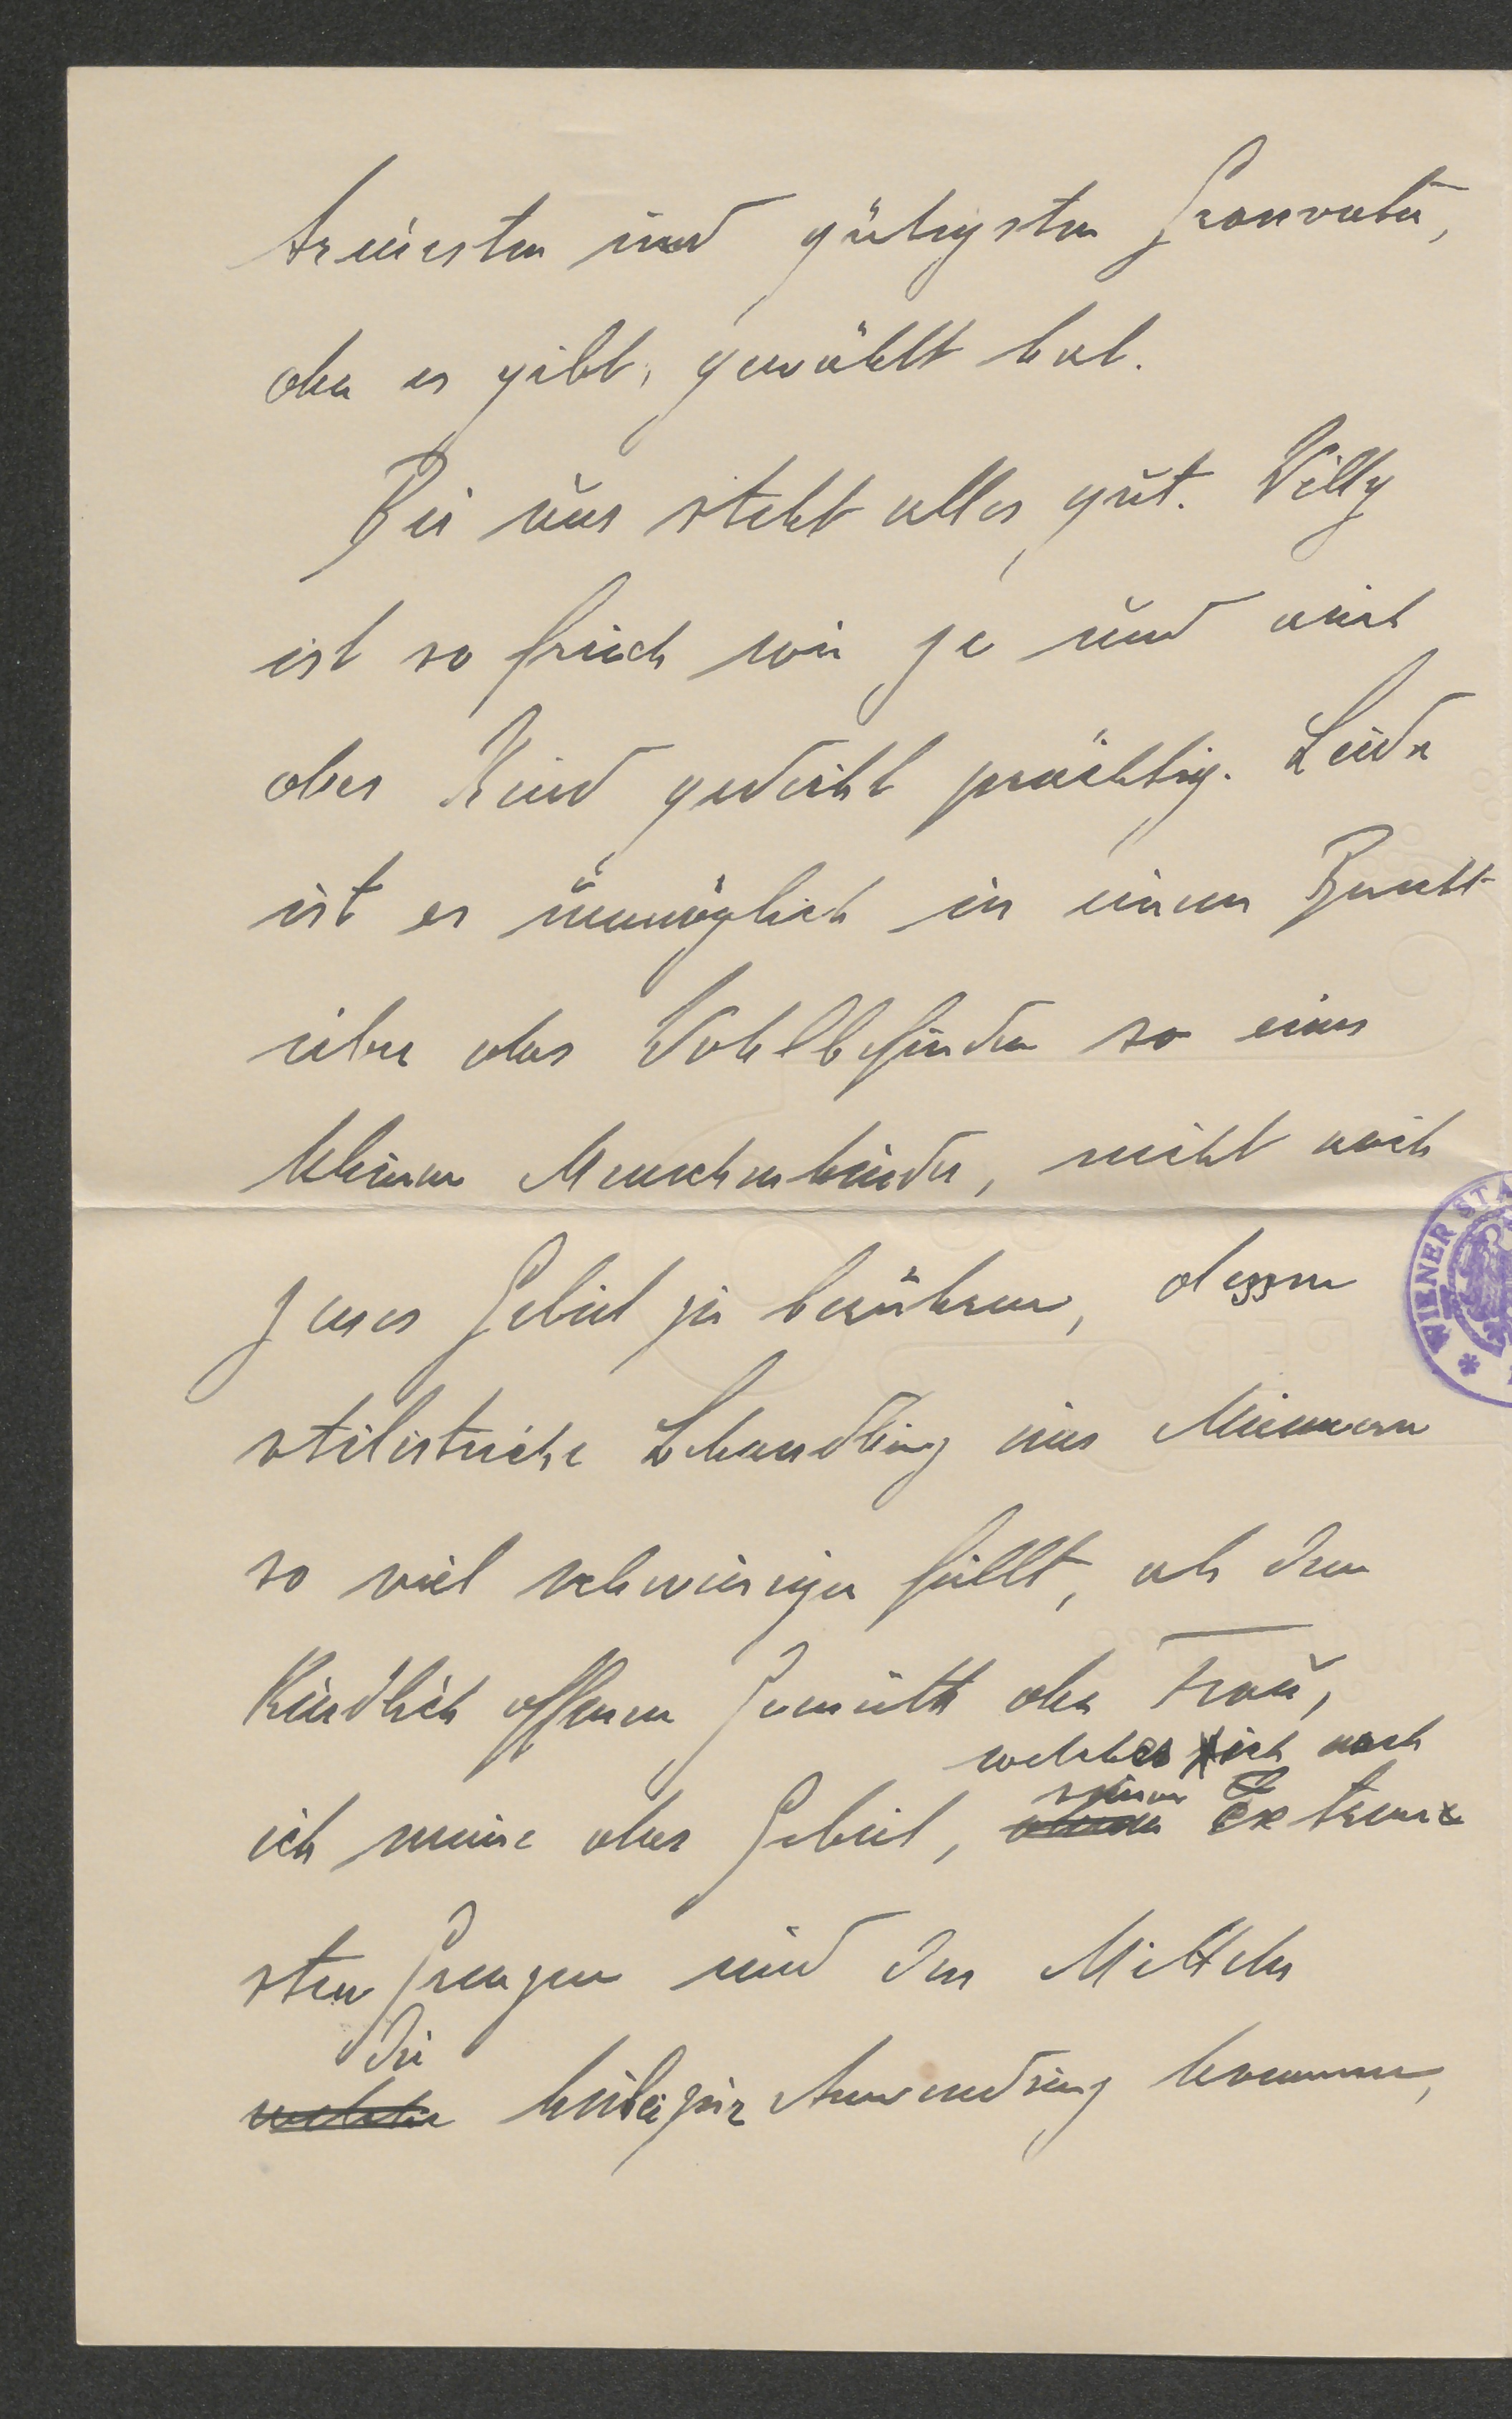 treuesten und gütigsten Grossvater,
den es gibt, gewählt hat.
Bei uns steht alles gut. Willy
ist so frisch wie je und auch
das Kind gedeiht prächtig. Leider
ist es unmöglich in einem Bericht
über das Wohlbefinden so eines
kleinen Menschenkindes, nicht auch
jenes Gebiet zu berühren, dessen
stilistische Behandlung uns Männern
so viel schwieriger fällt, als dem
kindlich offenen Gemüth der Frau,
welches sich nach
seinen
ich meine das Gebiet, Extrem
sten Grenzen und den Mitteln
die
welche hiebei zur Anwendung kommen,
WIENER STA